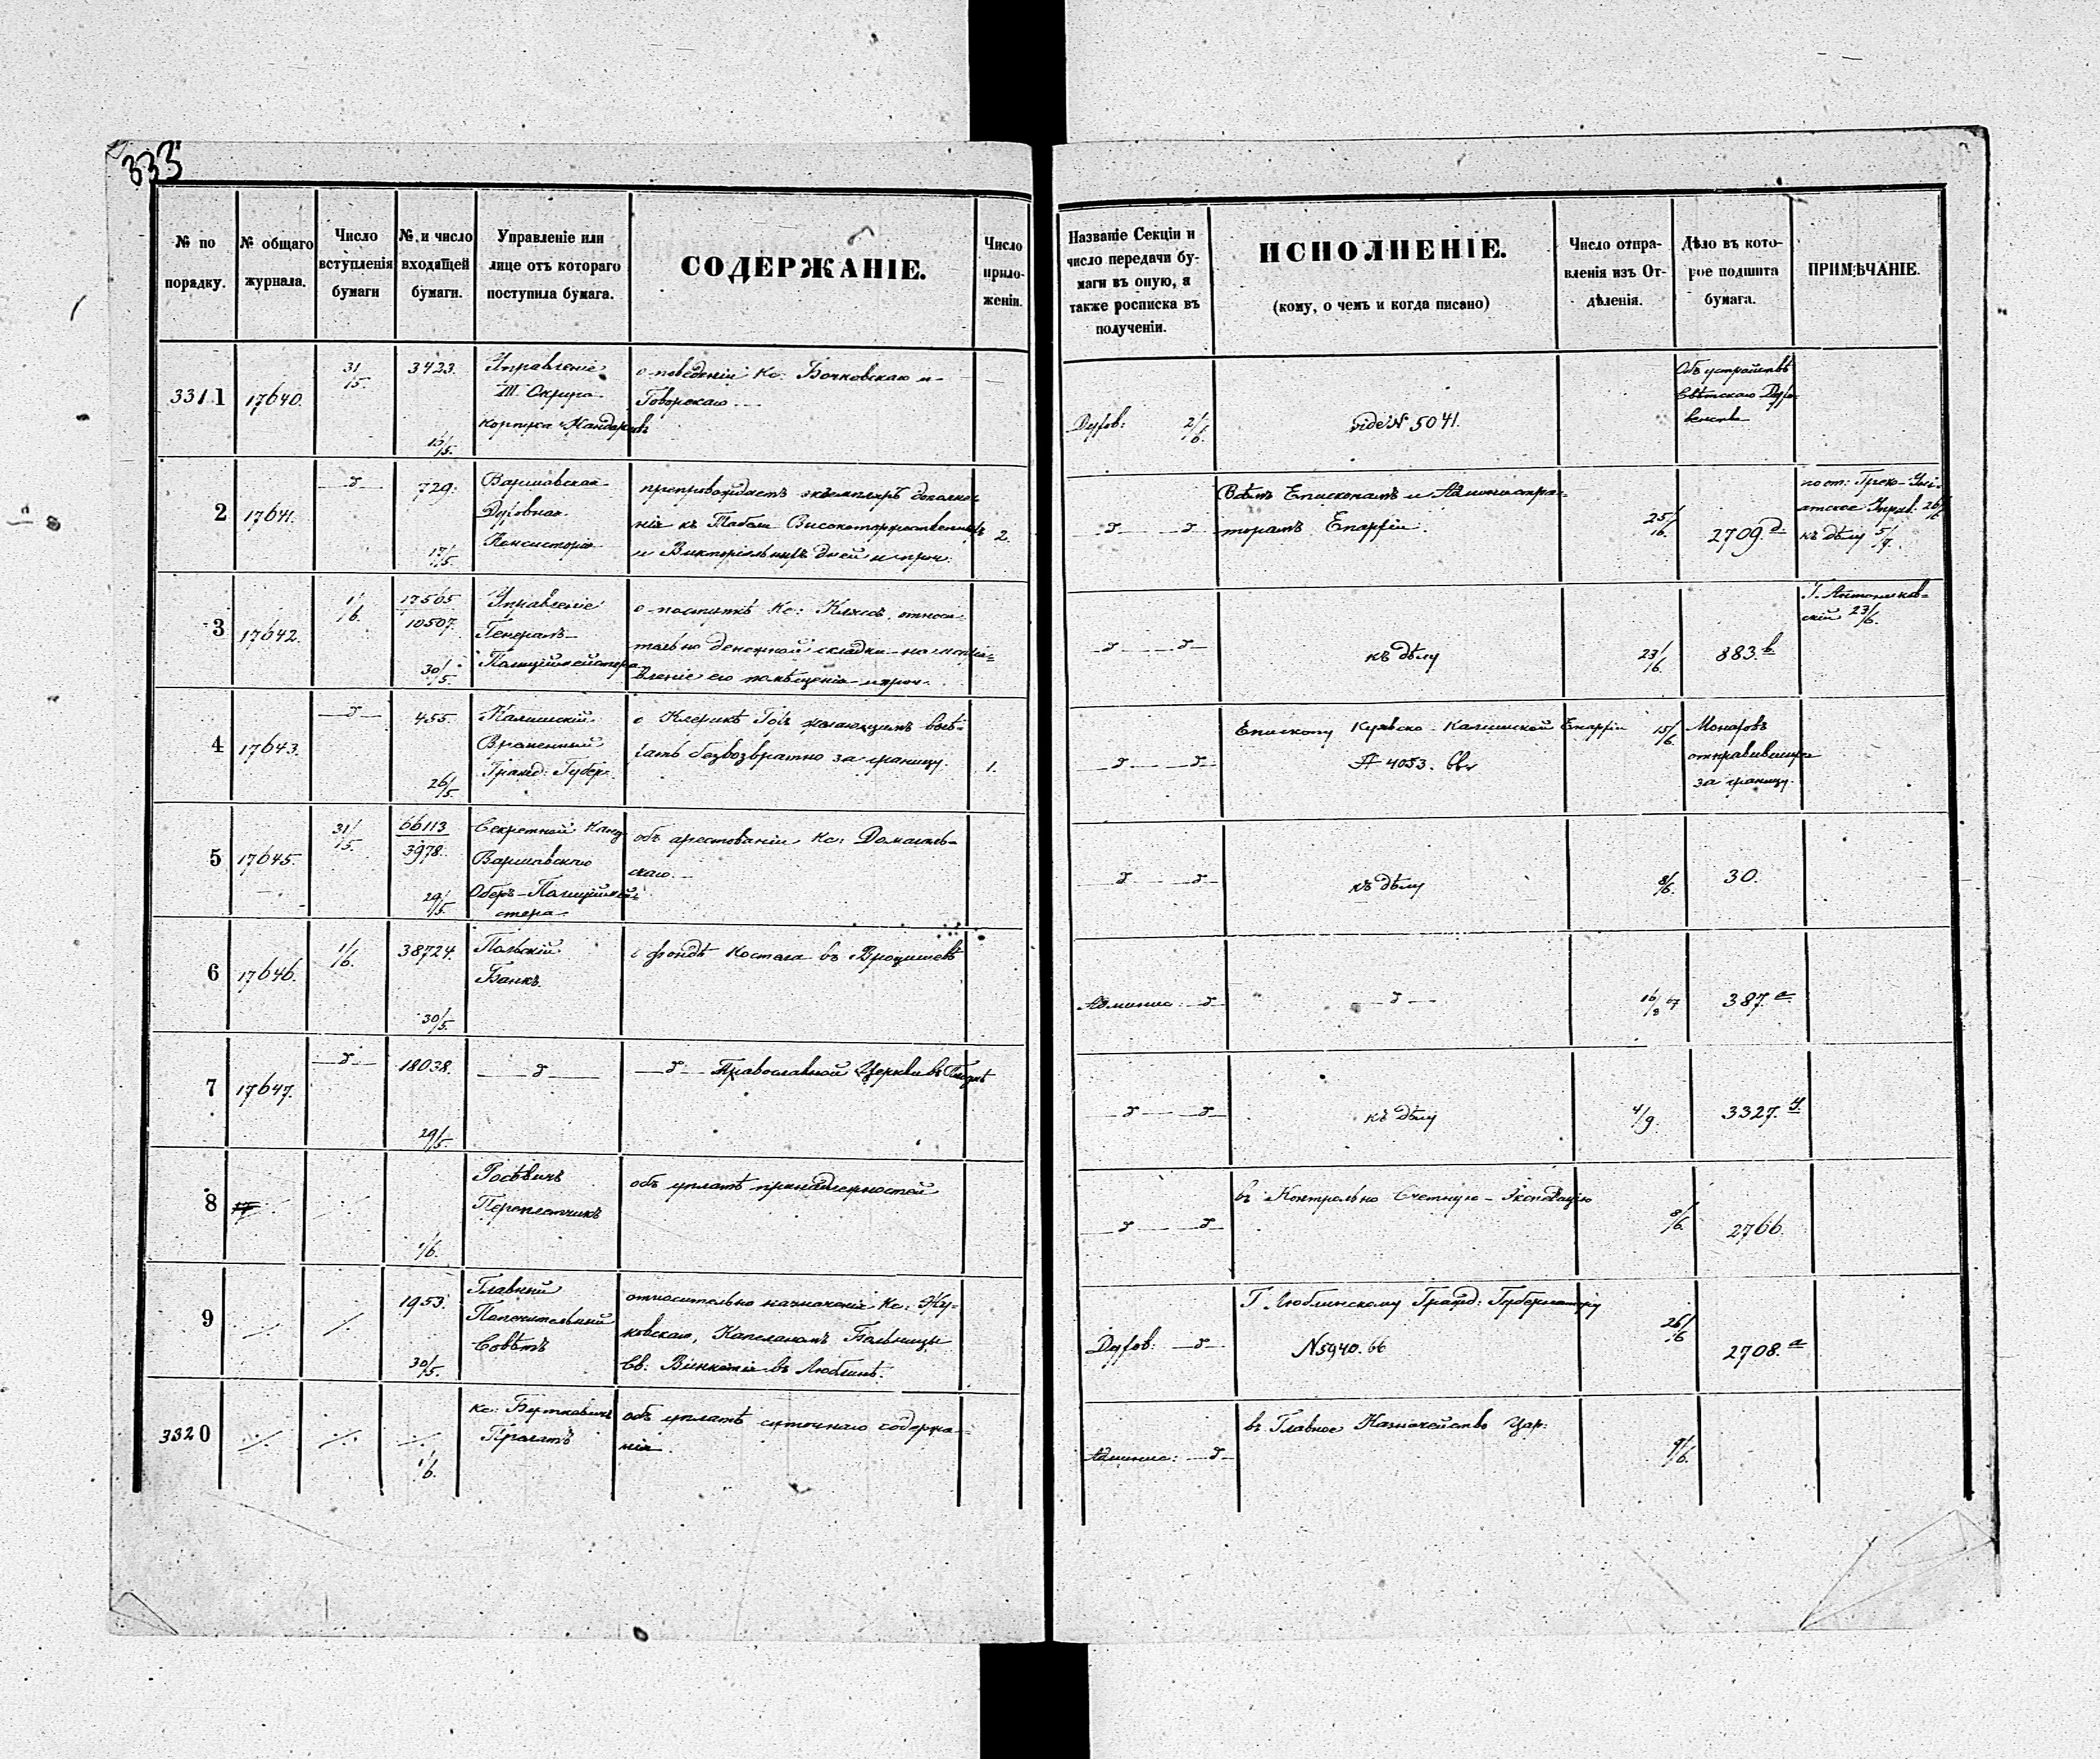 333
№ по порядку.
№ общаго журнала.
Число вступленія бумаги
№ и число входящей бумаги.
Управленіе или лице отъ котораго поступила бумага.
СОДЕРЖАНІЕ.
Число приложеніи.
Названіе Секціи и число передачи бумаги въ оную, я также росписка въ полученіи.
ИСПОЛНЕНІЕ.
(кому, о чемъ и когда писано)
Число отправленія изъ Отдѣленія.
Дѣло въ которое подшита бумага.
ПРИМѢЧАНІЕ.
3311 17640. 31/5. 3423. 15/5.
Управленіе
III Округа
Корпуса Жандармовъ
о поведеніи Кс: Бочковскаго и
Говорскаго
Духов: 2/6.
vide N 5041.
Объ устройствѣ
Свѣтскаго Духо-
венства
2 17641. 729. 17/5.
Варшавская
Духовная
Консисторія
препровождаетъ экземпляръ дополне-
нія къ Табели Высокоторжественныхъ
и Викторіальныхъ дней и проч.
2.
Всѣмъ Епископамъ и Администра-
торамъ Епархіи.
25/6. 2709 д.
по от: Греко-Уні-
атское Управ. 26/6
къ дѣлу 5/7.
3 17642. 1/6. 17565
10507. 30/5.
Управленіе
Генералъ-
Полиціймейстера
о поступкѣ Кс: относи-
тельно денежной складки на
его помѣщенія и проч.
къ дѣлу
23/6. 883. в.
23/6.
4 17643. 455. 26/5.
Калишскій
Временный
Гражд: Губер.
о Клерикѣ желающимъ выѣ-
хать безвозвратно за границу.
1.
Епископу Куявско-Калишской Епархіи
№ 4053.
15/6.
Монаховъ
отправившихся
за границу.
5 17645. 31/5. 66113
3978. 29/5.
Секретной Канц
Варшавскаго
Оберъ-Полиціймей-
стера
объ арестованіи Кс: Домагаль-
скаго.
къ дѣлу
8/6. 30.
6 17646. 1/6. 38724. 30/5.
Польскій
Банкъ.
о фондѣ Костела въ Вроцишевѣ
Админис
16/8 67 387. а
7 17647. 18038. 29/5.
Православной Церкви въ
къ дѣлу
4/9. 3327. У.
8 1/6.
Переплетчикъ
объ уплатѣ принадлежностей
въ Контрольно Счетную Экспедицію
8/6. 2766.
9 1953. 30/5.
Главный
Попечительный
Совѣтъ
относительно назначенія Кс: Жу-
ковскаго, Капеланомъ Больницы
Св: Винкентія въ Люблинѣ.
Духов:
Г. Люблинскому Гражд: Губернатору
N 5940. 66
26/6 2708. а
3320 1/6.
Кс: Буткевичъ
Прелатъ
объ уплатѣ суточнаго содержа-
нія.
Админис:
въ Главное Казначейство Цар:
9/6.